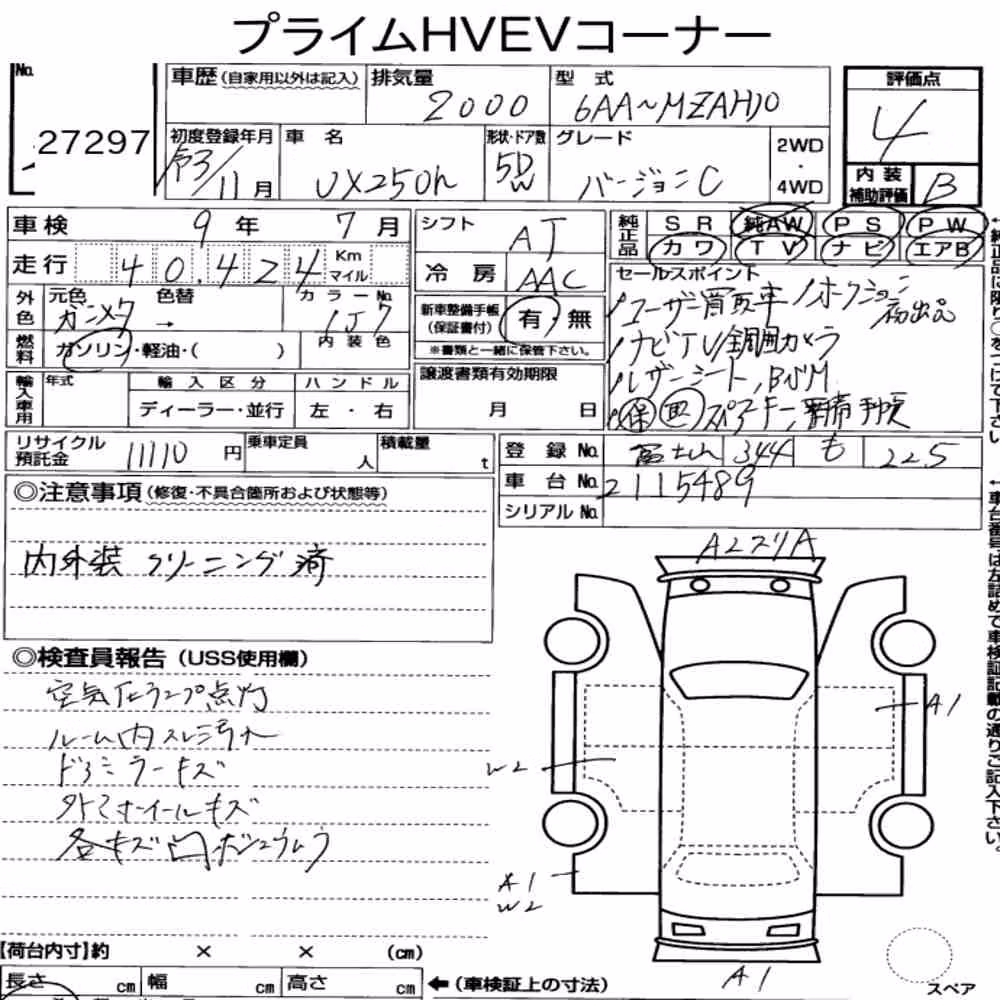 プライムHVEVコーナー
No. 27297
車歴 (自家用以外は記入)
排気量 2000
型式 6AA~MZAH10
評価点 4
初度登録年月 令3/11月
車名 UX250h
形状・ドア数 5D W
グレード バージョンC
2WD・4WD
内装補助評価 B
車検 9年 7月
シフト AT
純正品 SR 純AW PS PW
カワ TV ナビ エアB
走行 40,424 Km マイル
冷房 AAC
セールスポイント
外色 元色 ガンメタ 色替 → カラーNo. 1J7
内装色
新車整備手帳 (保証書付) 有・無
※書類と一緒に保管下さい。
ユーザー買取車 オークション初出品
ナビTV全周囲カメラ
レザーシート, BSM
保 取 スペアキー, 整備手帳
燃料 ガソリン・軽油・( )
輸入車用 年式 輸入区分 ハンドル
ディーラー・並行 左・右
譲渡書類有効期限
月 日
リサイクル預託金 11110円
乗車定員 人
積載量 t
登録No. 富士山 344 も 225
車台No. 2115489
シリアルNo.
◎注意事項 (修復・不具合箇所および状態等)
内外装 クリーニング済
◎検査員報告 (USS使用欄)
空気圧ランプ点灯
ルーム内スレ汚れ
ドアミラーキズ
外アホイールキズ
各キズ凹
A2スリA
A1
W2
A1
W2
A1
スペア
【荷台内寸】約 × × (cm)
長さ cm 幅 cm 高さ cm
← (車検証上の寸法)
←純正品に限り○をつけて下さい
←車台番号は左詰めで車検証記載の通りご記入下さい。